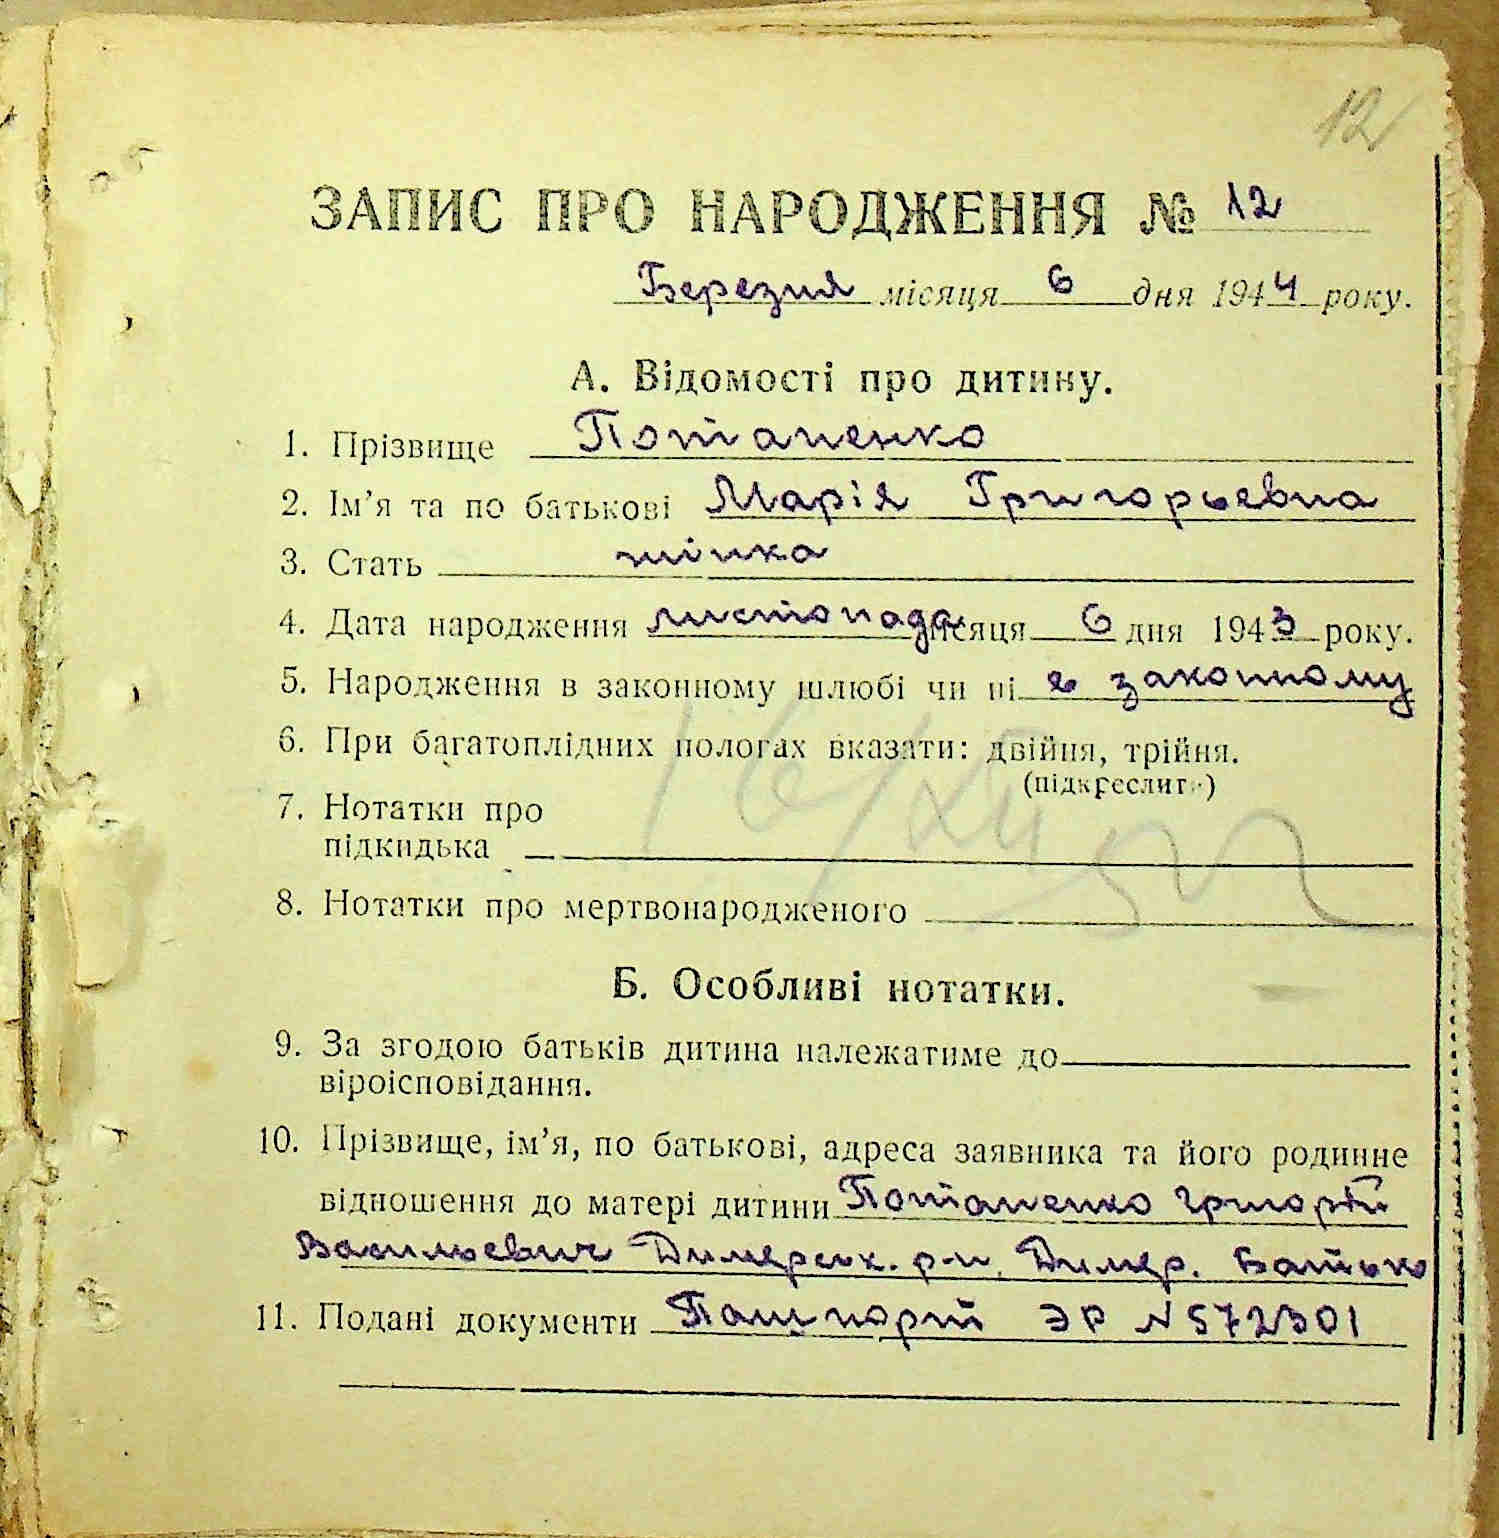 12
ЗАПИС ПРО НАРОДЖЕННЯ № 12
Березня місяця 6 дня 1944 року.
А. Відомості про дитину.
1. Прізвище Потапенко
2. Ім'я та по батькові Марія Григорьевна
3. Стать жінка
4. Дата народження листопада місяця 6 дня 1943 року.
5. Народження в законному шлюбі чи ні в законному
6. При багатоплідних пологах вказати: двійня, трійня.
(підкреслити)
7. Нотатки про
підкидька
8. Нотатки про мертвонародженого
Б. Особливі нотатки.
9. За згодою батьків дитина належатиме до
віроісповідання.
10. Прізвище, ім'я, по батькові, адреса заявника та його родинне
відношення до матері дитини Потапенко Григорій
Васильевич Димерськ. р-н. Димер. Батько
11. Подані документи Пашпорт ЭР N 572301